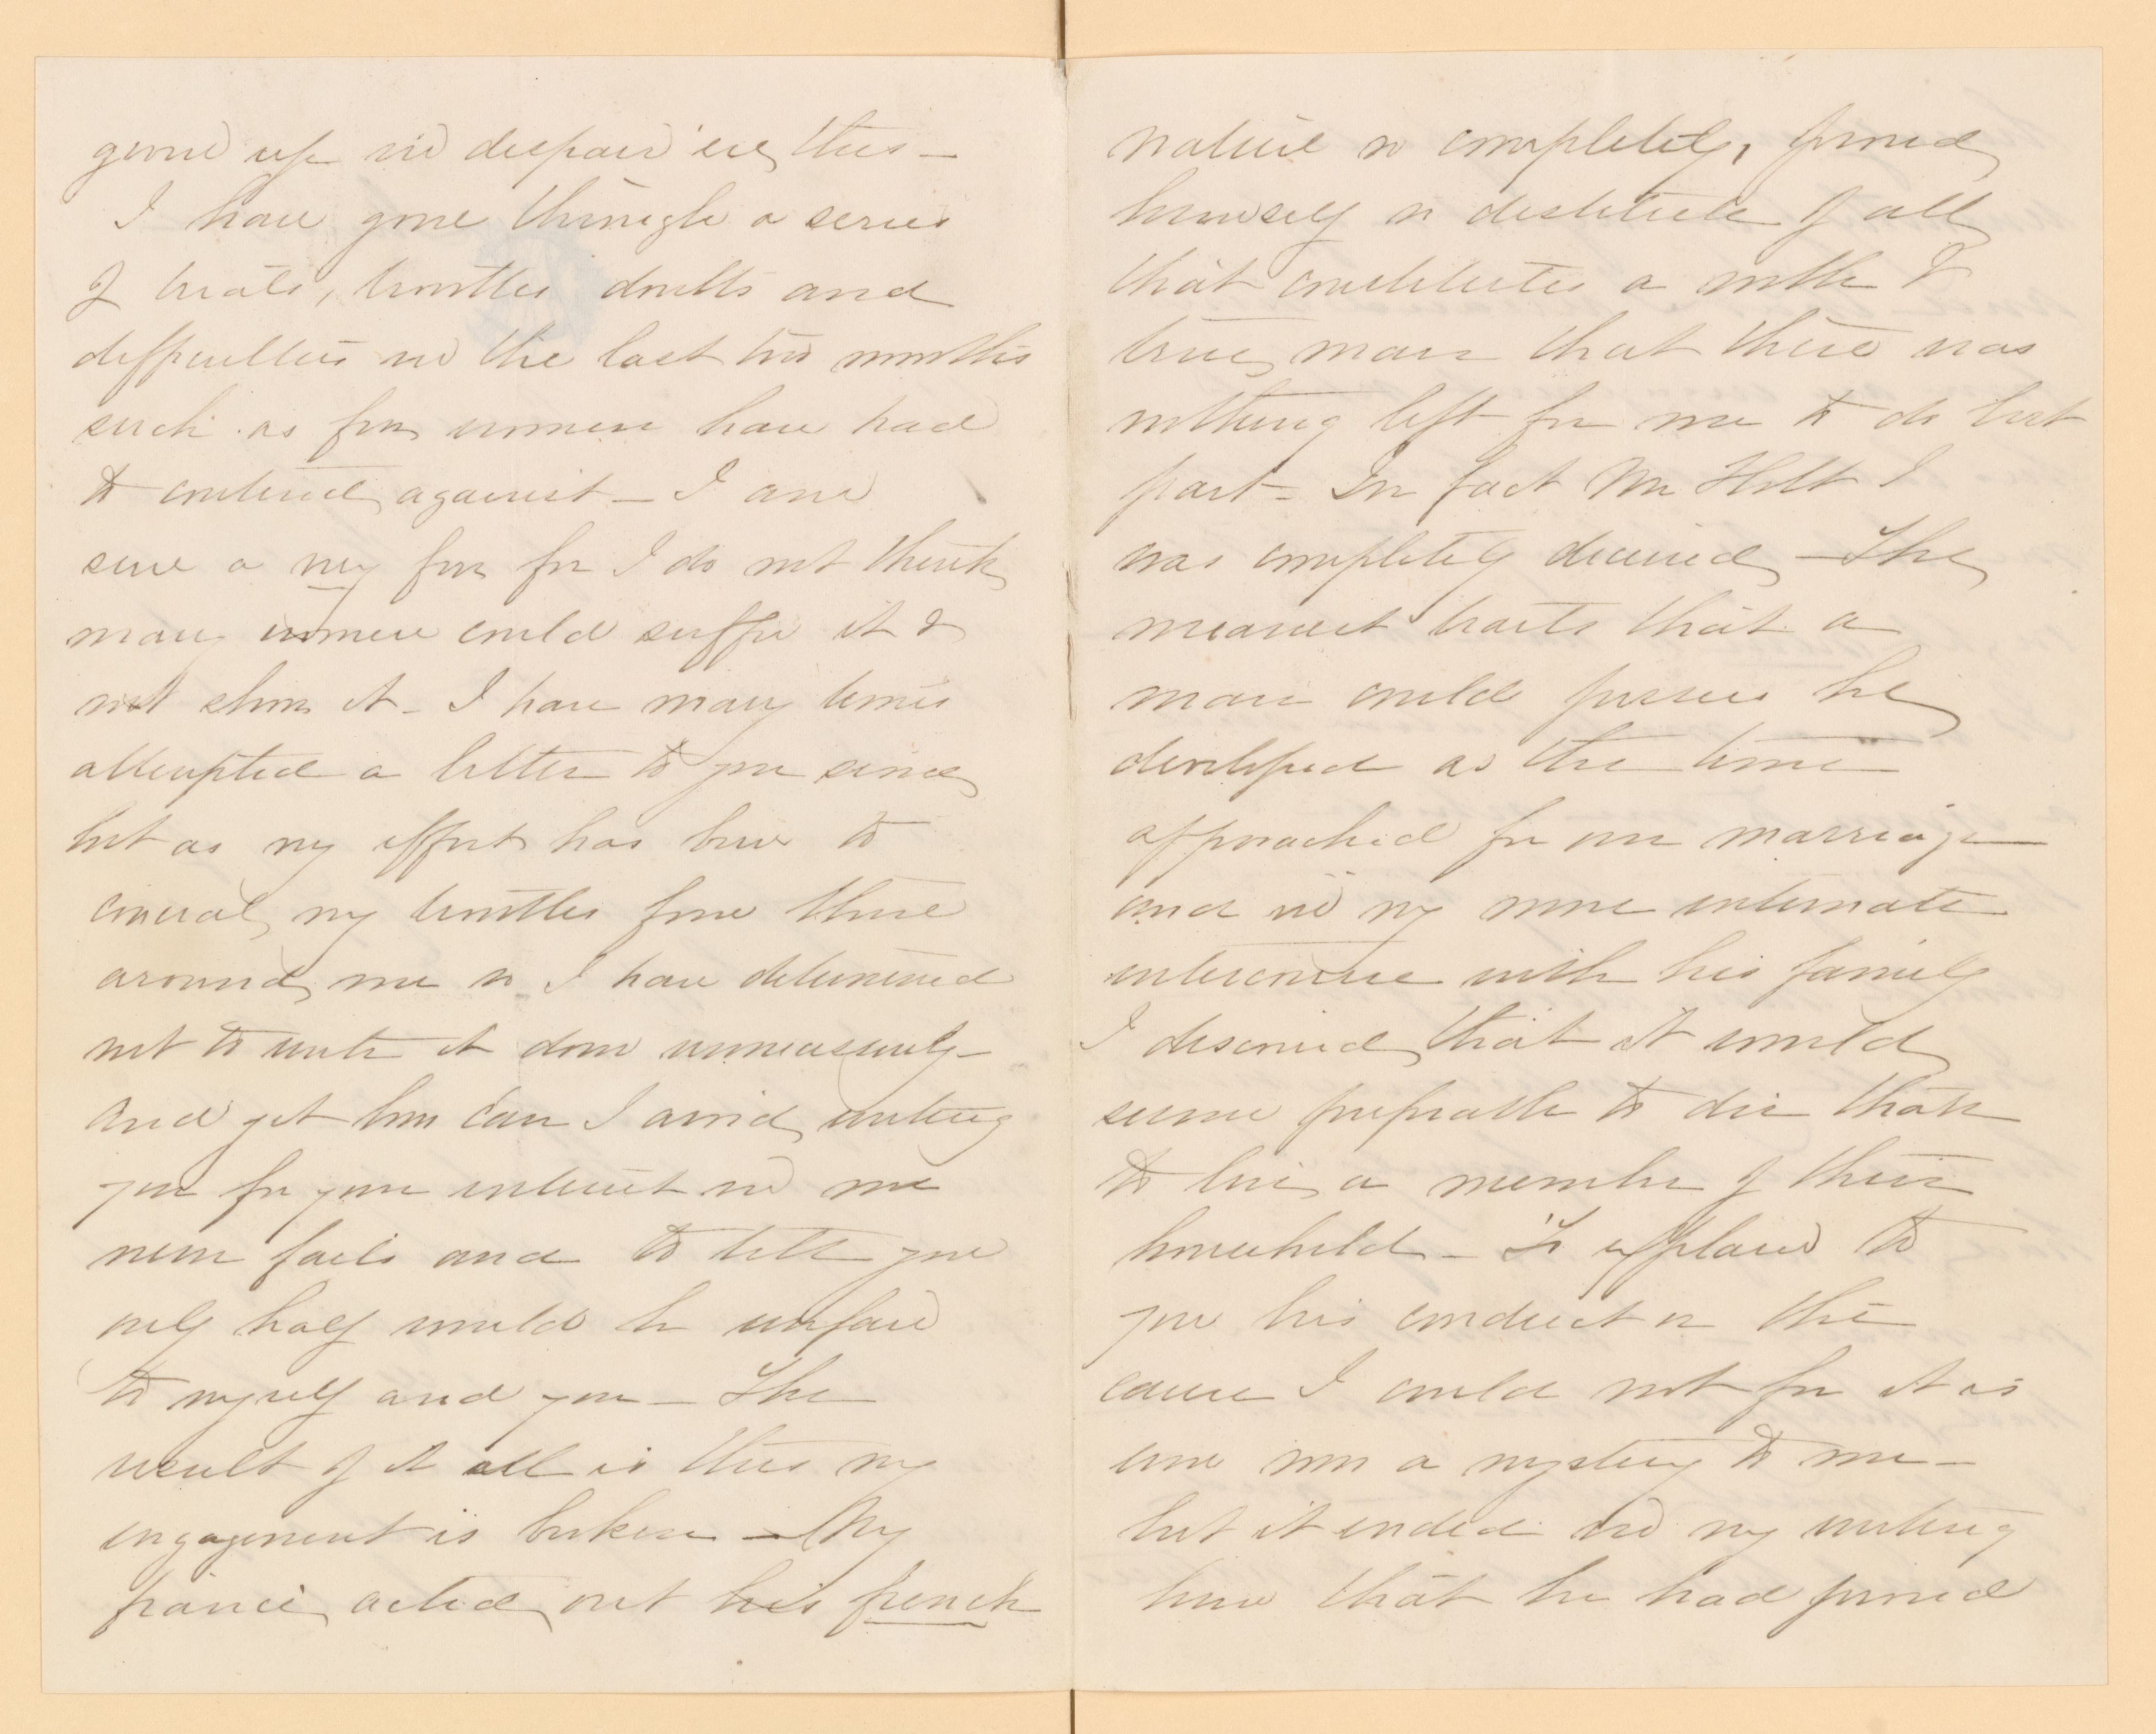 given up in despair ere this —
I have gone through a series
of trials, troubles doubts and
difficulties in the last two months
such as few women have had
to contend against — I am
sure a very few for I do not think
many women could suffer it &
not show it — I have many times
attempted a letter to you since
but as my effort has been to
conceal my troubles from those
around me so I have determined
not to write it down unnecessarily —
and yet how can I avoid writing
you for your interest in me
never fails and to tell you
only half would be unfair
to myself and you — The
result of it all is this my
engagement is broken — My
fiancé acted out his french
nature so completely, proved
himself so destitute of all
that constitutes a noble &
true man that there was
nothing left for me to do but
part — In fact Mr Holt I
was completely deceived — The
meanest traits that a
man could possess he
developed as the time
approached for our marriage
and in my more intimate
intercourse with his family
I discovered that it would
seem preferable to die than
to live a member of their
household — To explain to
you his conduct or the
cause I could not for it is
even now a mystery to me —
but it ended in my writing
him that he had proved